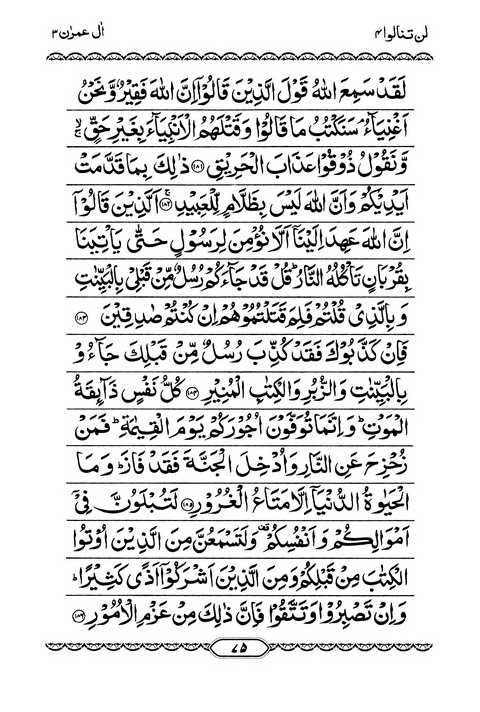 لن تنالوا ۴
اٰل عمرٰن ۳
لَقَدْ سَمِعَ اللّٰهُ قَوْلَ الَّذِيْنَ قَالُوْۤا اِنَّ اللّٰهَ فَقِيْرٌ وَّنَحْنُ
اَغْنِيَآءُ ۘ سَنَكْتُبُ مَا قَالُوْا وَقَتْلَهُمُ الْاَنْۢبِيَآءَ بِغَيْرِ حَقٍّ ۙ
وَّنَقُوْلُ ذُوْقُوْا عَذَابَ الْحَرِيْقِ ﴿۱۸۱﴾ ذٰلِكَ بِمَا قَدَّمَتْ
اَيْدِيْكُمْ وَاَنَّ اللّٰهَ لَيْسَ بِظَلَّامٍ لِّلْعَبِيْدِ ﴿۱۸۲﴾ۚ اَلَّذِيْنَ قَالُوْۤا
اِنَّ اللّٰهَ عَهِدَ اِلَيْنَاۤ اَلَّا نُؤْمِنَ لِرَسُوْلٍ حَتّٰى يَاْتِيَنَا
بِقُرْبَانٍ تَاْكُلُهُ النَّارُ ؕ قُلْ قَدْ جَآءَكُمْ رُسُلٌ مِّنْ قَبْلِيْ بِالْبَيِّنٰتِ
وَبِالَّذِيْ قُلْتُمْ فَلِمَ قَتَلْتُمُوْهُمْ اِنْ كُنْتُمْ صٰدِقِيْنَ ﴿۱۸۳﴾
فَاِنْ كَذَّبُوْكَ فَقَدْ كُذِّبَ رُسُلٌ مِّنْ قَبْلِكَ جَآءُوْ
بِالْبَيِّنٰتِ وَالزُّبُرِ وَالْكِتٰبِ الْمُنِيْرِ ﴿۱۸۴﴾ كُلُّ نَفْسٍ ذَآىِٕقَةُ
الْمَوْتِ ؕ وَاِنَّمَا تُوَفَّوْنَ اُجُوْرَكُمْ يَوْمَ الْقِيٰمَةِ ؕ فَمَنْ
زُحْزِحَ عَنِ النَّارِ وَاُدْخِلَ الْجَنَّةَ فَقَدْ فَازَ ؕ وَمَا
الْحَيٰوةُ الدُّنْيَاۤ اِلَّا مَتَاعُ الْغُرُوْرِ ﴿۱۸۵﴾ لَتُبْلَوُنَّ فِيْۤ
اَمْوَالِكُمْ وَاَنْفُسِكُمْ ۟ وَلَتَسْمَعُنَّ مِنَ الَّذِيْنَ اُوْتُوا
الْكِتٰبَ مِنْ قَبْلِكُمْ وَمِنَ الَّذِيْنَ اَشْرَكُوْۤا اَذًى كَثِيْرًا ؕ
وَاِنْ تَصْبِرُوْا وَتَتَّقُوْا فَاِنَّ ذٰلِكَ مِنْ عَزْمِ الْاُمُوْرِ ﴿۱۸۶﴾
۷۵